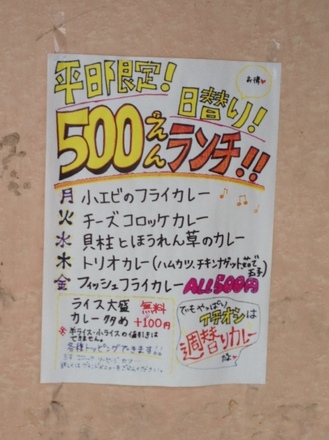 平日限定!
お得
日替り!
500えんランチ!!
月 小エビのフライカレー
火 チーズコロッケカレー
水 貝柱とほうれん草のカレー
木 トリオカレー(ハムカツ、チキンナゲット
金 フィッシュフライカレー ALL500円
ライス大盛 無料
カレー多め +100円
※半ライス・小ライスの値引きは
できません。
各種トッピングできます!!
でもやっぱり
イチオシは
週替りカレー